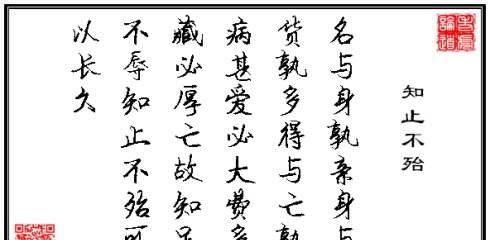 知止不殆
名与身孰亲身与
货孰多得与亡孰
病甚爱必大费多
藏必厚亡故知足
不辱知止不殆可
以长久